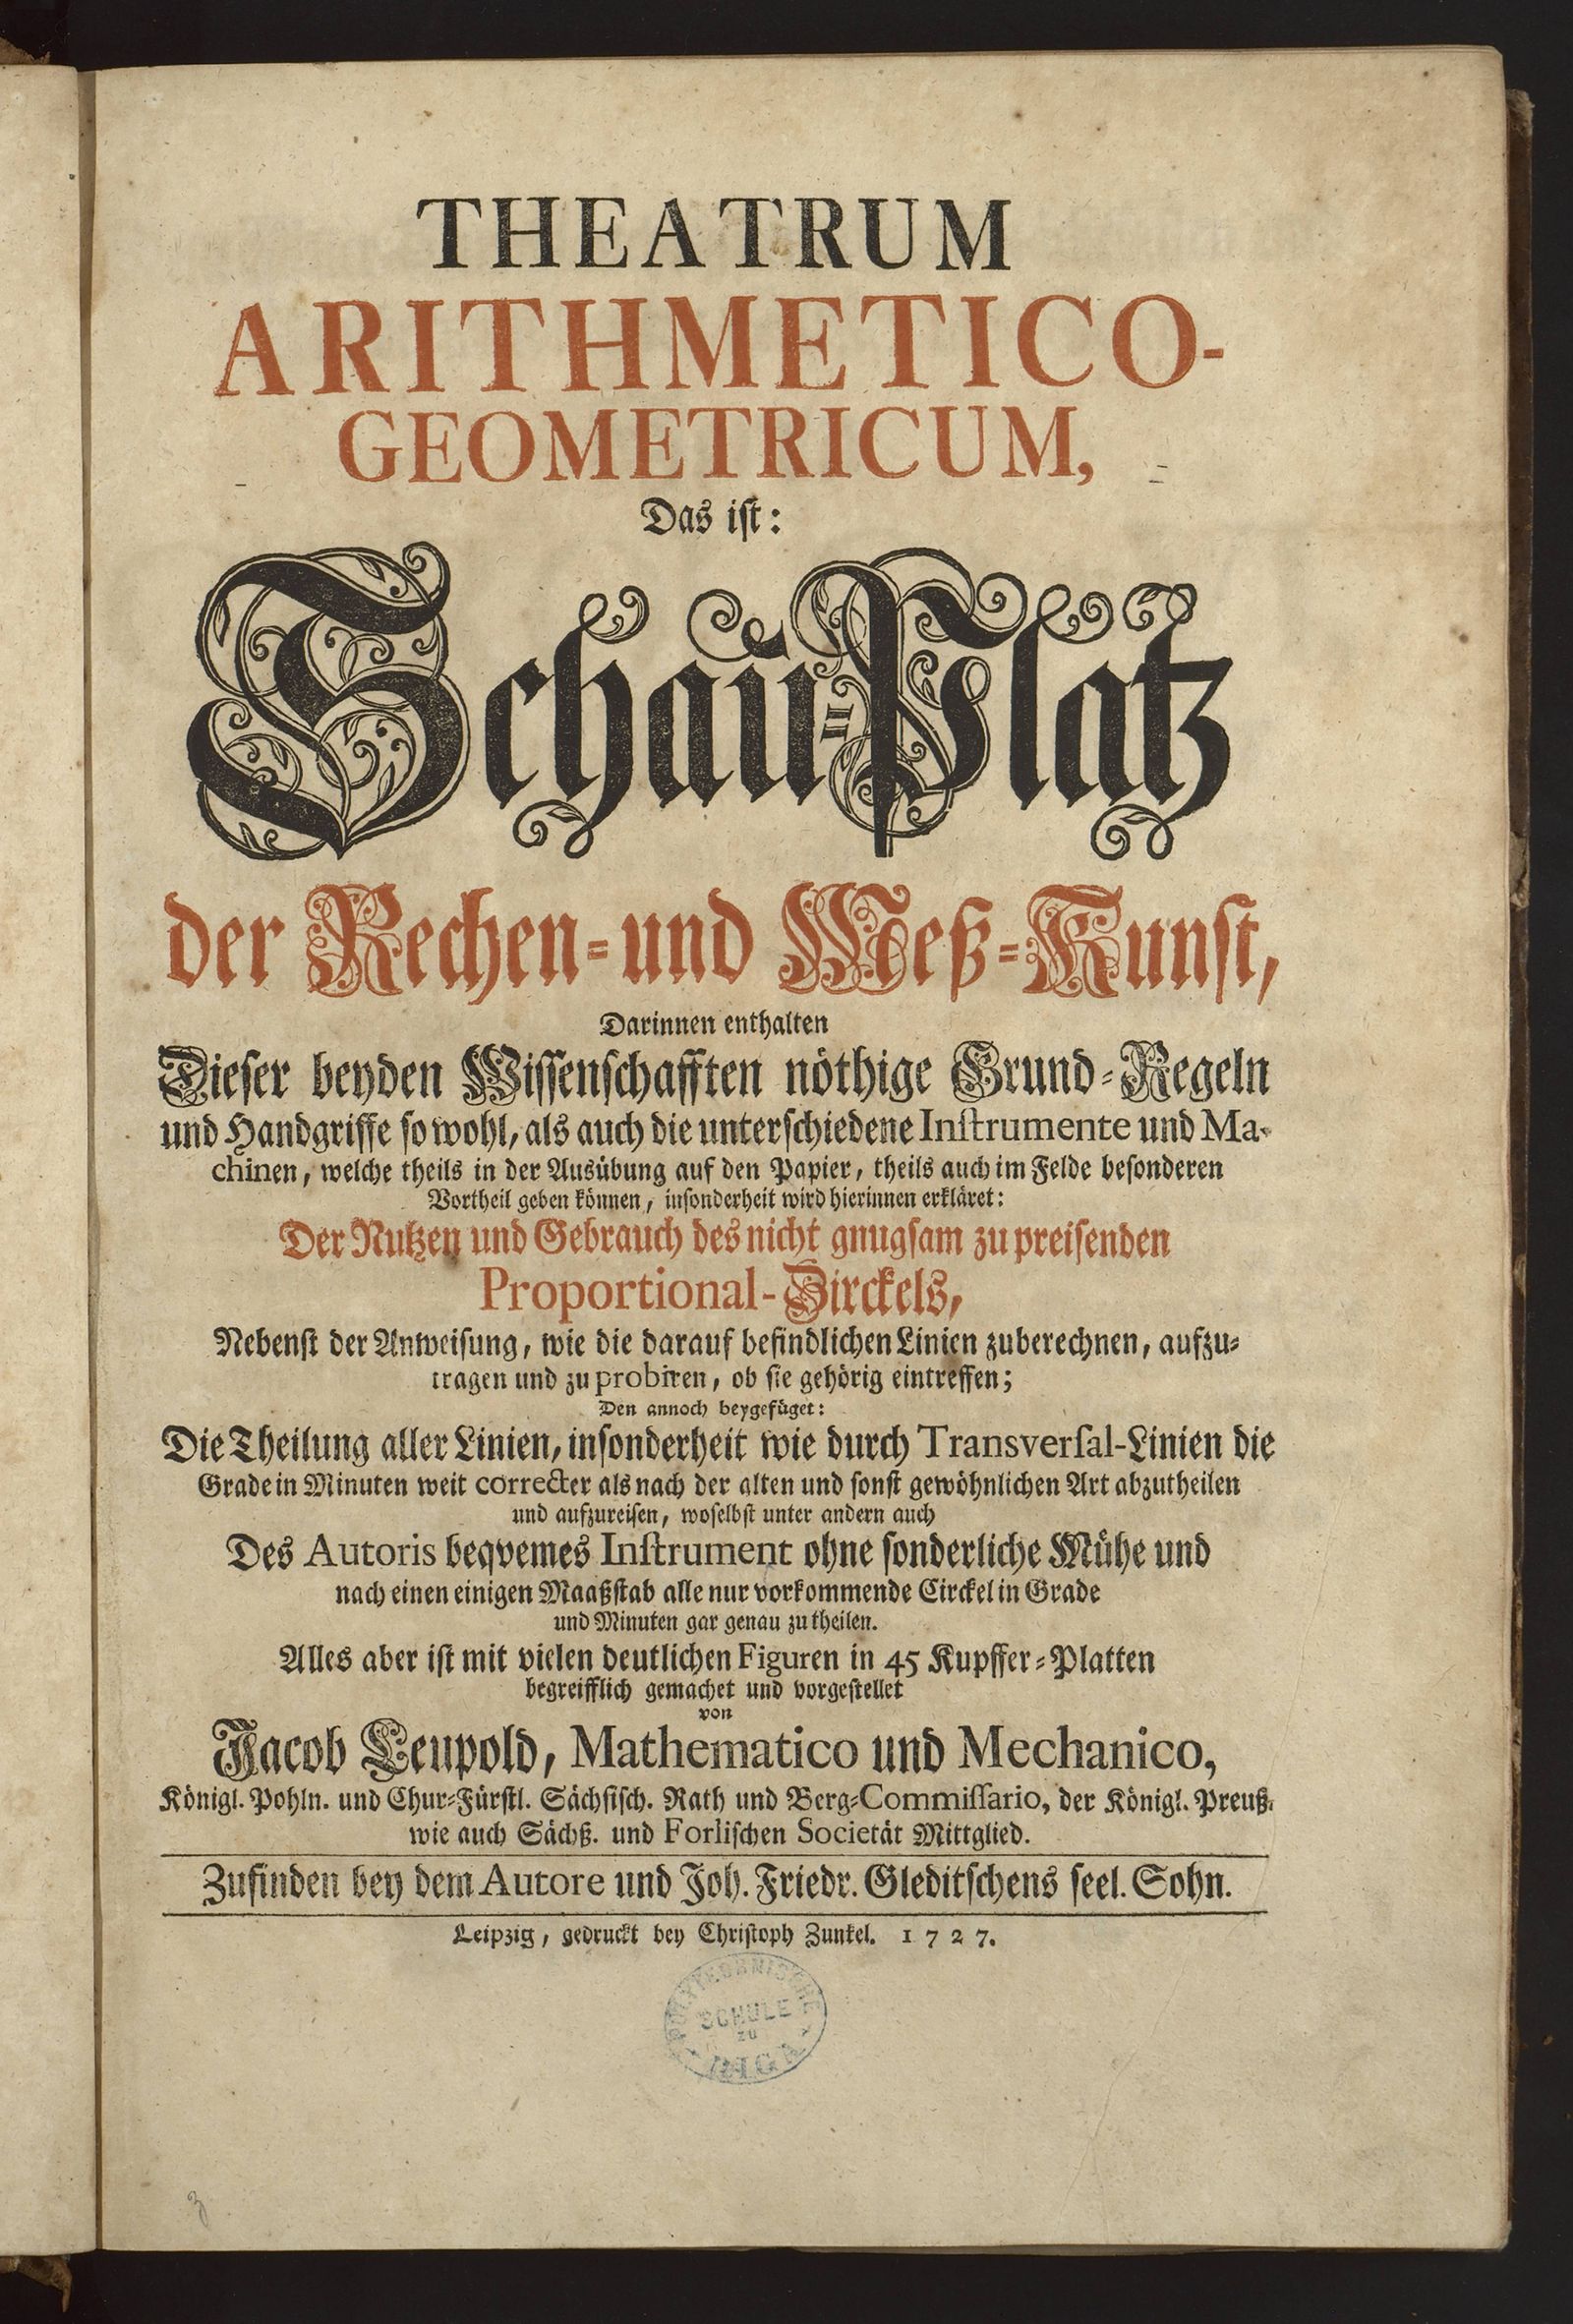 THEATRUM
ARITHMETICO-
GEOMETRICUM,
Das ist:
Schau-Platz
der Rechen- und Meß-Kunst,
Darinnen enthalten
Dieser beyden Wissenschafften nöthige Grund-Regeln
und Handgriffe so wohl, als auch die unterschiedene Instrumente und Ma-
chinen, welche theils in der Ausübung auf den Papier, theils auch im Felde besonderen
Vortheil geben können, insonderheit wird hierinnen erkläret:
Der Nutzen und Gebrauch des nicht gnugsam zu preisenden
Proportional-Zirckels,
Nebenst der Anweisung, wie die darauf befindlichen Linien zuberechnen, aufzu-
tragen und zu probiren, ob sie gehörig eintreffen;
Den annoch beygefüget:
Die Theilung aller Linien, insonderheit wie durch Transversal-Linien die
Grade in Minuten weit correcter als nach der alten und sonst gewöhnlichen Art abzutheilen
und aufzureisen, woselbst unter andern auch
Des Autoris beqvemes Instrument ohne sonderliche Mühe und
nach einen einigen Maaßstab alle nur vorkommende Circkel in Grade
und Minuten gar genau zu theilen.
Alles aber ist mit vielen deutlichen Figuren in 45 Kupffer-Platten
begreifflich gemachet und vorgestellet
von
Jacob Leupold, Mathematico und Mechanico,
Königl. Pohln. und Chur-Fürstl. Sächsisch. Rath und Berg-Commissario, der Königl. Preuß.
wie auch Sächß. und Forlischen Societät Mittglied.
Zufinden bey dem Autore und Joh. Friedr. Gleditschens seel. Sohn.
Leipzig, gedruckt bey Christoph Zunkel. 1727.
POLYTECHNISCHE
SCHULE
ZU
RIGA